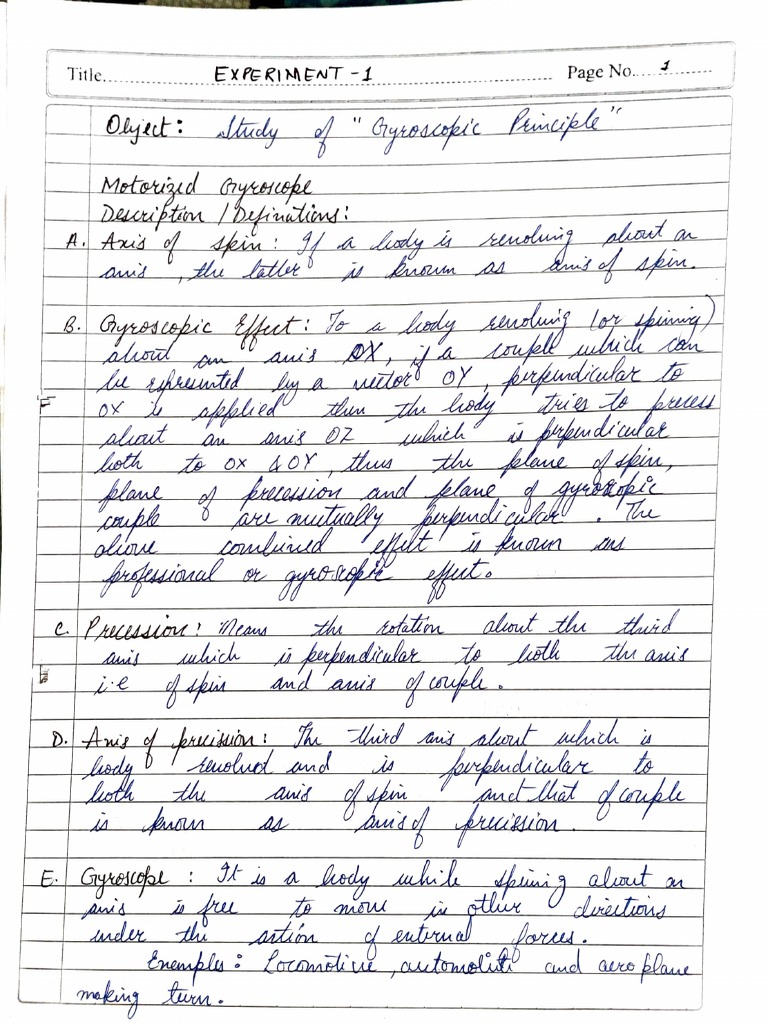 Title.......... EXPERIMENT - 1 .......... Page No. 1
Object: Study of "Gyroscopic Principle"
Motorized Gyroscope
Description / Definations:
A. Axis of spin: If a body is revolving about an
axis, the latter is known as axis of spin.
B. Gyroscopic Effect: To a body revolving (or spining)
about an axis OX, if a couple which can
be represented by a vector OY, perpendicular to
OX is applied then the body tries to precess
about an axis OZ which is perpendicular
both to OX & OY, thus the plane of spin,
plane of precession and plane of gyroscopic
couple are mutually perpendicular. The
above combined effect is known as
professional or gyroscopic effect.
C. Precession: Means the rotation about the third
axis which is perpendicular to both the axis
i.e of spin and axis of couple.
D. Axis of precission: The third axis about which is
body revolved and is perpendicular to
both the axis of spin and that of couple
is known as axis of precission.
E. Gyroscope: It is a body while spining about an
axis is free to move in other directions
under the action of external forces.
Examples: Locomotive, automobile and aeroplane
making turn.